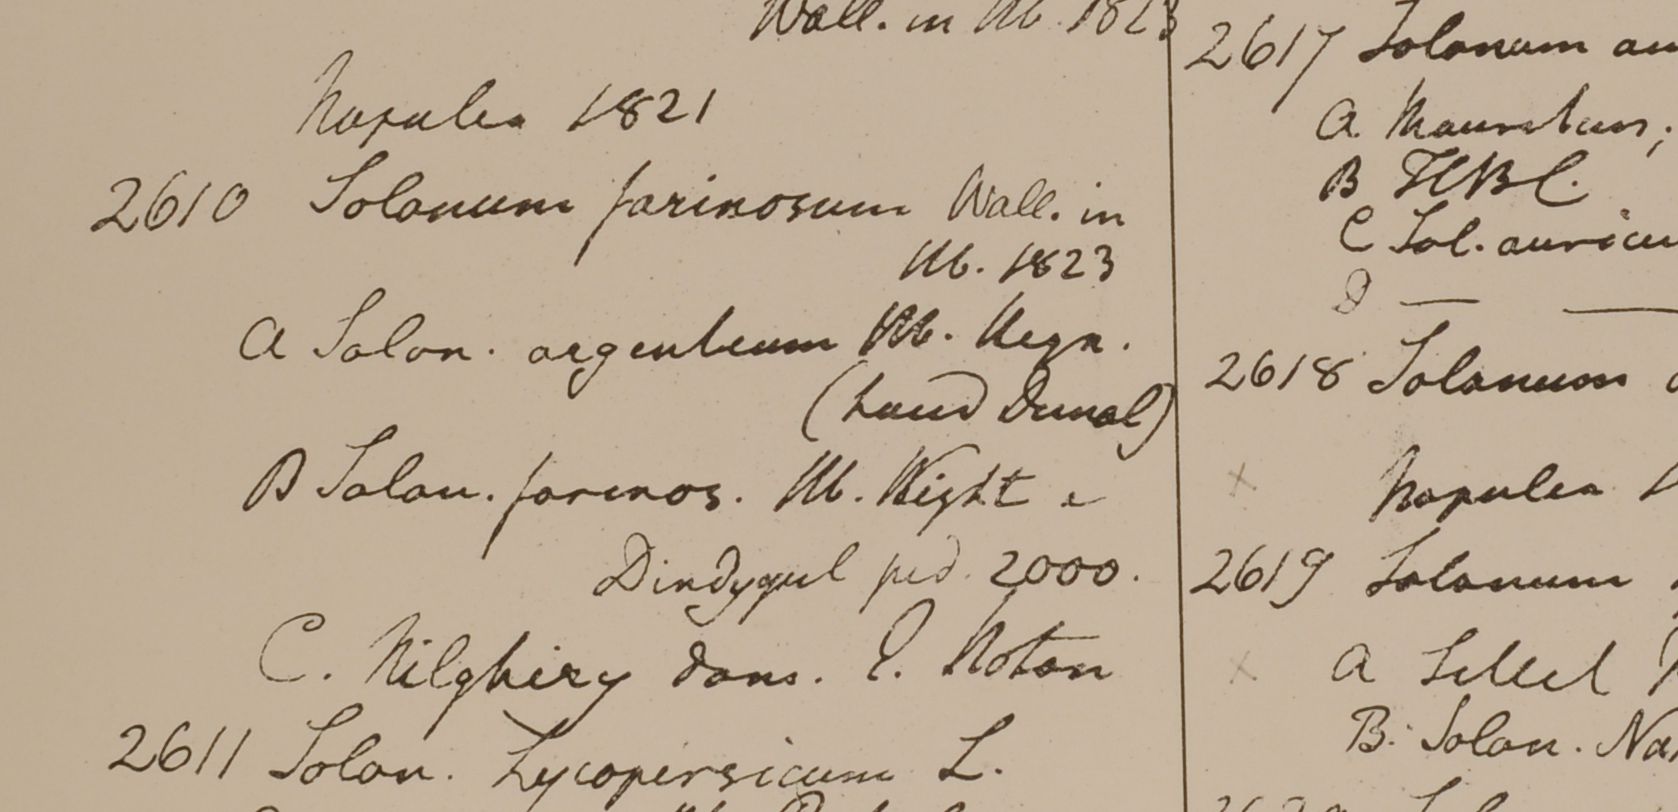 Wall. in Hb. 1823
Napalea 1821
2610 Solanum farinosum Wall. in
Hb. 1823
A Solan. argenteum Hb. Heyn.
(haud Dunal)
B Solan. farinos. Hb. Wight e
Dindygul ped. 2000.
C. Nilghiry dom. E. Noton
2611 Solan. Lycopersicum L.
2617 Solanum au
A Mauritius;
B HBC.
C Sol. auricu
D —
2618 Solanum
x Napalea
2619 Solanum
x A Sillet
B. Solan. Na